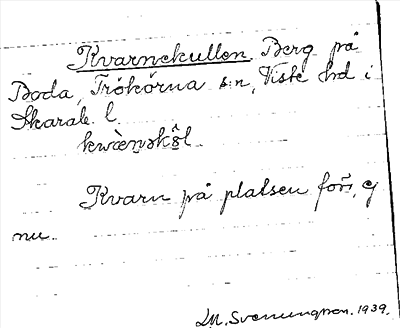 Kvarnekullen, Berg på
Boda, Trökörna sn, Viste hd i
Skarab. l.
kwæ̀nəkə̂l
Kvarn på platsen förr, ej
nu.
M. Svenungson. 1939.